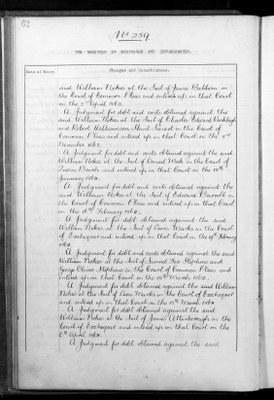 62
No. 259
THE REGISTER OF MORTGAGES AND INCUMBRANCES.
Date of Entry.
Charges and Incumbrances.
said William Nokes at the Suit of James Baldwin in
the Court of Common Pleas and entered up in that Court
on the April 1862.
A Judgment for debt and costs obtained against the
said William Nokes at the Suit of Charles Edward
and Robert Williamson in the Court of
Common Pleas and entered up in that Court on the
November 1862.
A Judgment for debt and costs obtained against the said
William Nokes at the Suit of Daniel in the Court of
Queens Bench and entered up in that Court on the
January 1863.
A Judgment for debt obtained against the said
William Nokes at the Suit of Edward in
the Court of Common Pleas and entered up in that Court
on the February 1863.
A Judgment for debt obtained against the said
William Nokes at the Suit of Marks in the Court
of Exchequer and entered up in that Court on the February
1863.
A Judgment for debt and costs obtained against the said
William Nokes at the Suit of Samuel Fox Stephens and
George Oliver Stephens in the Court of Common Pleas and
entered up in that Court on the March 1863.
A Judgment for debt obtained against the said William
Nokes at the Suit of Marks in the Court of Exchequer
and entered up in that Court on the March 1863.
A Judgment for debt obtained against the said
William Nokes at the Suit of James Attenborough in the
Court of Exchequer and entered up in that Court on the
April 1863.
A Judgment for debt obtained against the said